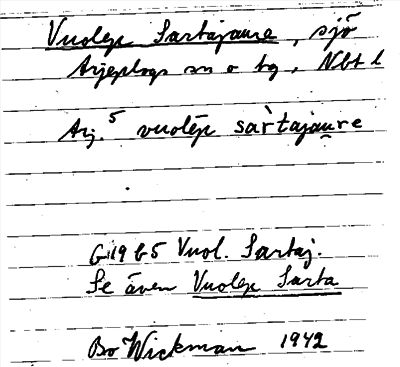 Vuolep Sartajaure, sjö
Arjeplogs sn o tg, Nbt l
Arj.⁵ vuolēp sàrtajau̯re
G 19 b5 Vuol. Sartaj.
Se även Vuolep Sarta
Bo Wickman 1942